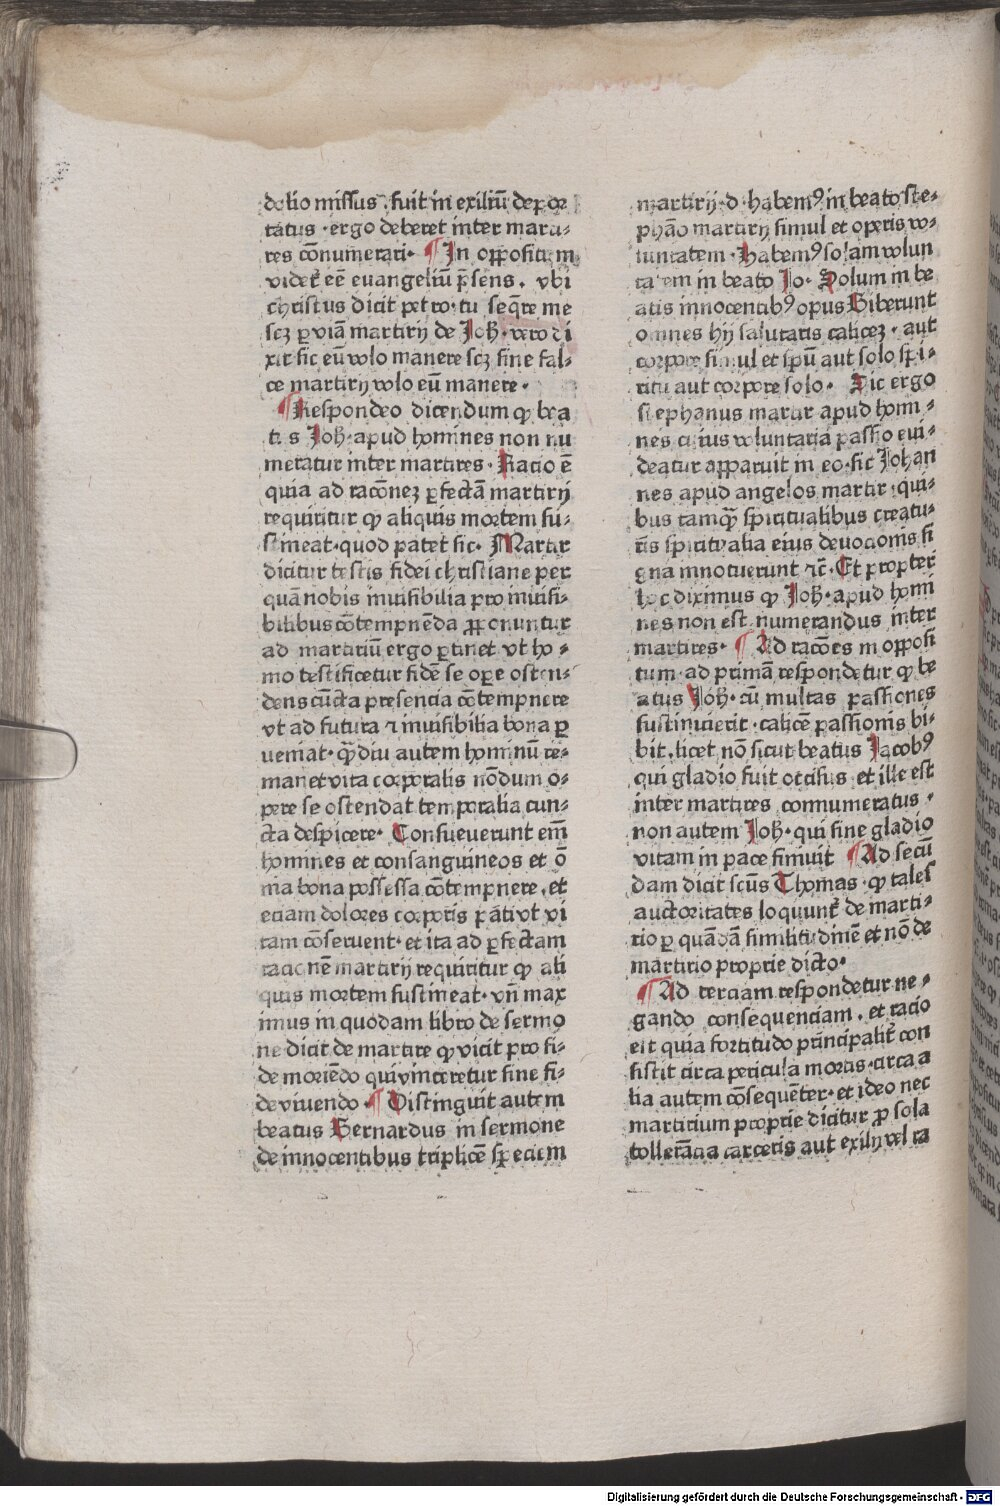 dolio missus. fuit in exiliū depor
tatus · ergo deberet inter marti-
res cōnumerari· ¶ In oppositum
videt᷑ eē euangeliū p̄sens . vbi
christus dicit petro · tu seq̄re me
scꝫ ꝑ viā martirij de Joh̄ · vero di
xit sic eū volo manere scꝫ sine fal-
ce martirij volo eū manere ·
¶ Respondeo dicendum ꝙ bea
tus Joh̄ · apud homines non nu
meratur inter martires · Racio ē
quia ad racōnez ꝑfectā martirij
requiritur ꝙ aliquis mortem su-
stineat · quod patet sic· Martir
dicitur testis fidei christiane per
quā nobis inuisibilia pro inuisi-
bilibus cōtempnēda ꝓponuntur
ad martiriū ergo ꝑtinet vt ho -
mo testificetur fidē se oꝑe osten-
dens cūcta presencia cōtempnere
vt ad futura ⁊ inuisibilia bona ꝑ
ueniat · ꝙ̄diu autem hominū re-
manet vita corporalis nōdum o-
pere se ostendat temporalia cun-
cta despicere· Consueuerunt em̄
homines et consanguineos et ō
ma bona possessa cōtempnere . et
eciam dolores corporis pati vt vi
tam cōseruent · et ita ad ꝑfectam
racionē martirij requiritur ꝙ ali
quis mortem sustineat · vn̄ max
imus in quodam libro de sermo
ne dicit de martire ꝙ vicit pro fi-
de moriēdo qui vinceretur sine fi-
de viuendo · ¶ Distinguit autem
beatus Bernardus in sermone
de innocentibus triplicē speciem
martirij · d · habemꝰ in beato ste-
phāo martirij simul et operis vo-
luntatem · Habemꝰ solam volun
tatem in beato Jo· Solum in be
atis innocentibꝰ opus Biberunt
omnes hij salutaris calicez . aut
corpore simul et sp̄u aut solo spi-
ritu aut corpore solo · Sic ergo
stephanus martir apud homi -
nes cuius voluntaria passio eui-
deatur apparuit in eo · sic Johan
nes apud angelos martir · qui-
bus tamꝙ̄ spiritualibus creatu-
ris spiritualia eius deuocionis si
gna innotuerunt ⁊c̄ · Et propter
hoc diximus ꝙ Joh̄ · apud homi
nes non est numerandus inter
martires· ¶ Ad racōes in opposi
tum · ad primā respondetur ꝙ be
atus Joh̄ · cū multas passiones
sustinuerit · calicē passionis bi-
bit · licet nō sicut beatus Jacobꝰ
qui gladio fuit occisus et ille est
inter martires connumeratus ·
non autem Joh̄ · qui sine gladio
vitam in pace finiuit ¶ Ad secū
dam dicit scūs Thomas · ꝙ tales
auctoritates loquunt᷑ de marti-
rio ꝑ quādā similitudinē et nō de
martirio proprie dicto·
¶ Ad terciam respondetur ne -
gando consequenciam . et racio
est quia fortitudo principalit᷑ con
sistit circa pericula mortis · circa a
lia autem cōsequēter · et ideo nec
martirium proprie dicitur ꝓ sola
tollerācia carceris aut exilij vel ra
Digitalisierung gefördert durch die Deutsche Forschungsgemeinschaft - DFG